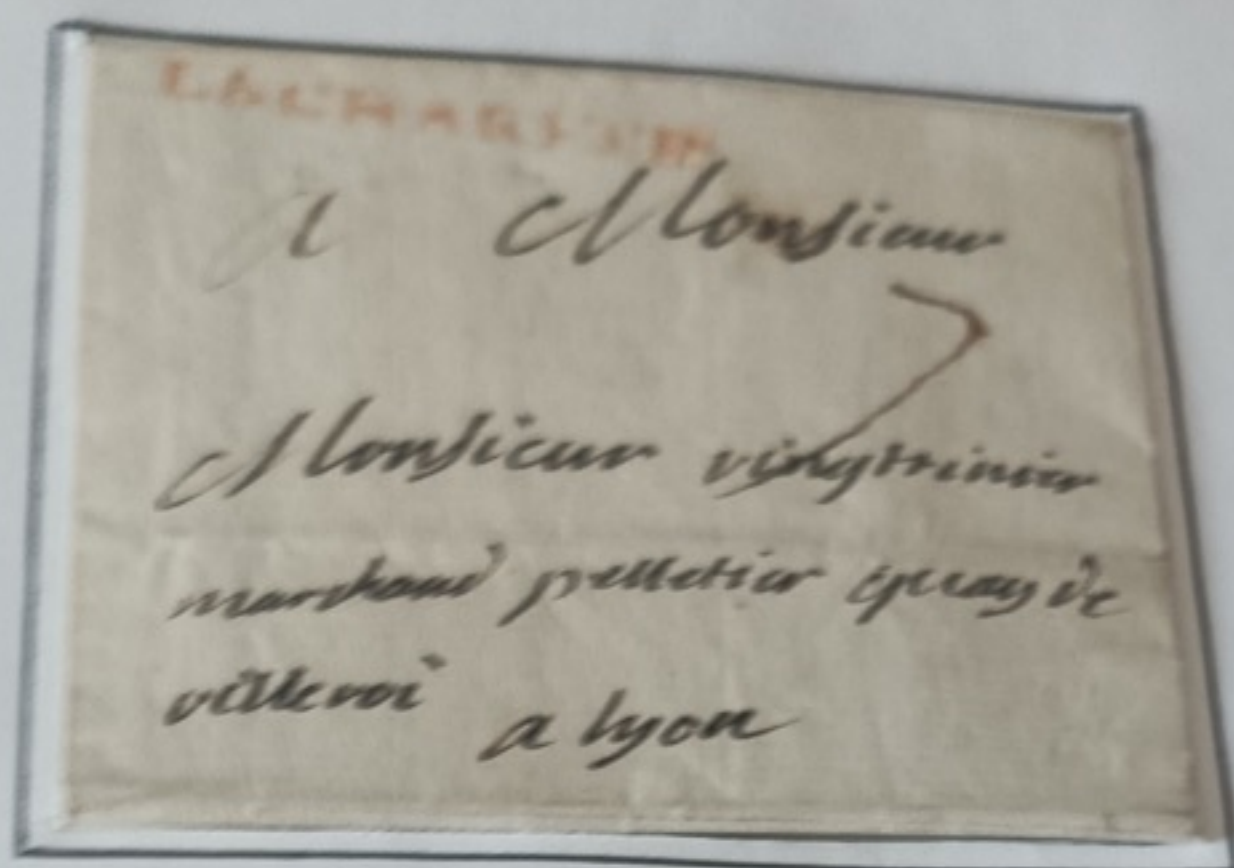 LACHARITÉ
A Monsieur
Monsieur vingtrinier
marchand pelletier quay de
villeroi
a lyon